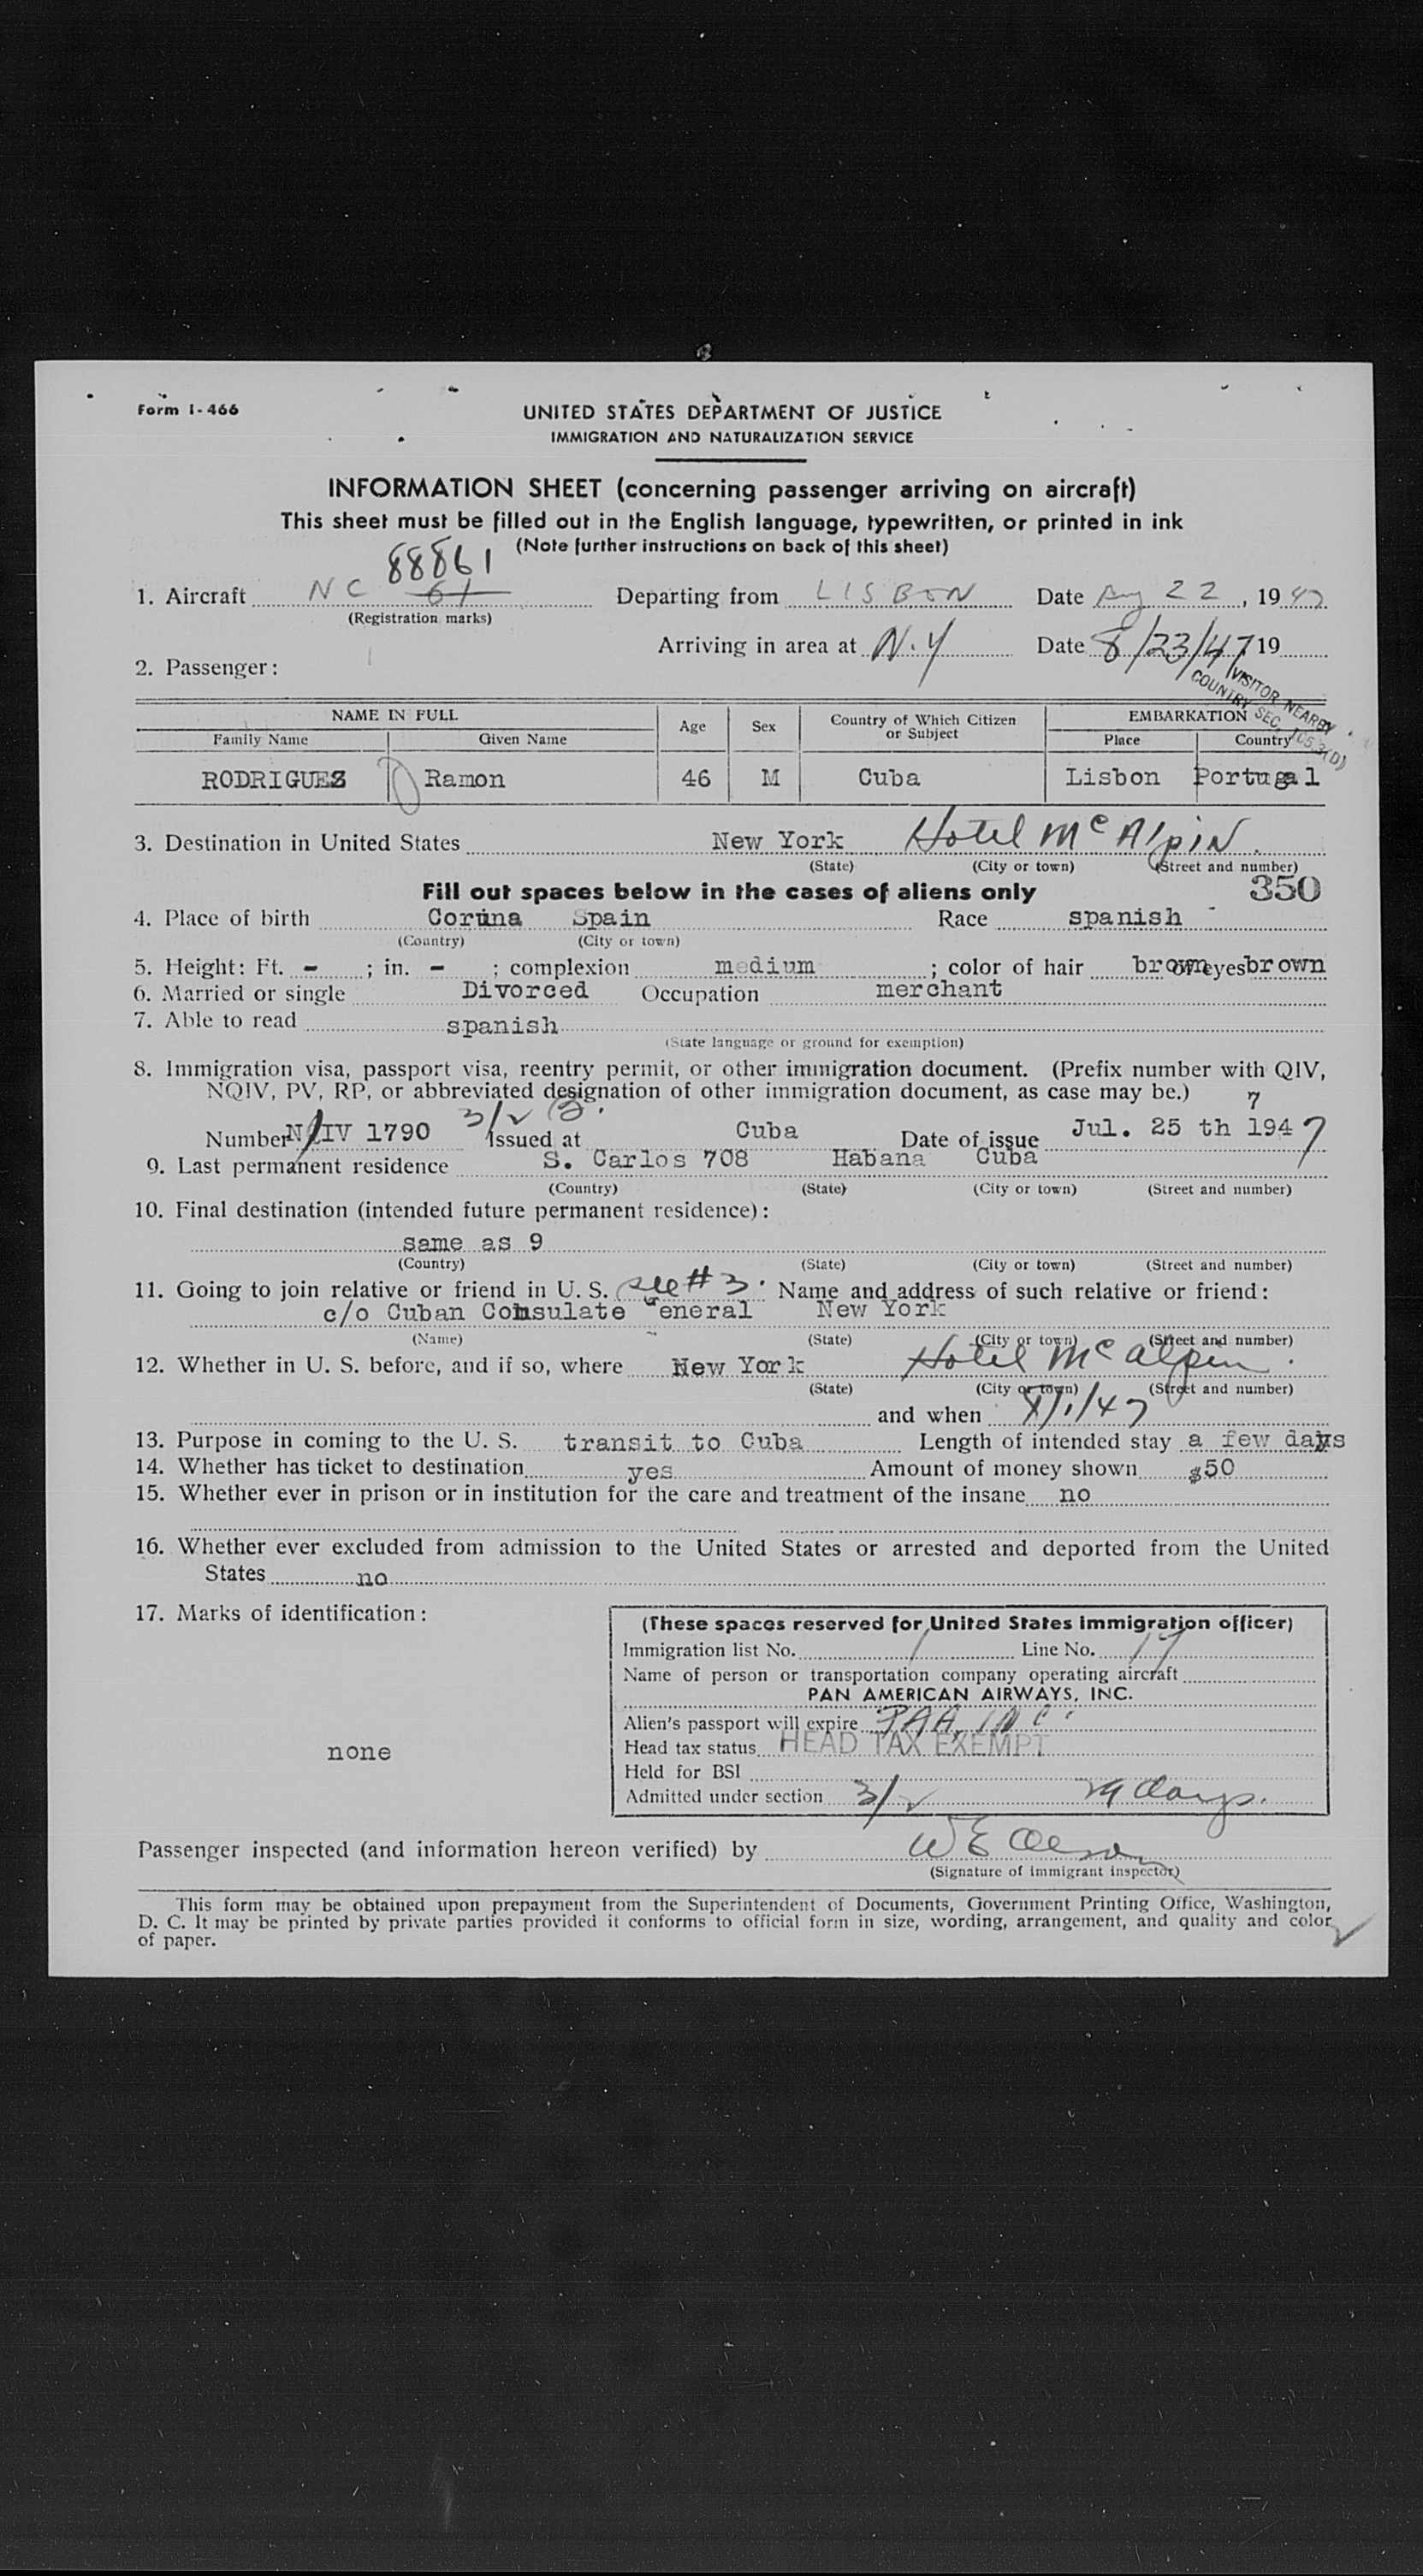 Form I-466
UNITED STATES DEPARTMENT OF JUSTICE
IMMIGRATION AND NATURALIZATION SERVICE
INFORMATION SHEET (concerning passenger arriving on aircraft)
This sheet must be filled out in the English language, typewritten, or printed in ink
(Note further instructions on back of this sheet)
88861
1. Aircraft NC 61 Departing from LISBON Date Aug 22, 1947
(Registration marks)
Arriving in area at N.Y Date 8/23/47 19
2. Passenger:
VISITOR NEARBY
COUNTRY SEC. 165.3(D)
NAME IN FULL Age Sex Country of Which Citizen or Subject EMBARKATION
Family Name Given Name Place Country
RODRIGUEZ Ramon 46 M Cuba Lisbon Portugal
3. Destination in United States New York Hotel McAlpin.
(State) (City or town) (Street and number)
Fill out spaces below in the cases of aliens only 350
4. Place of birth Coruna Spain Race spanish
(Country) (City or town)
5. Height: Ft. - ; in. - ; complexion medium ; color of hair brown of eyes brown
6. Married or single Divorced Occupation merchant
7. Able to read spanish
(State language or ground for exemption)
8. Immigration visa, passport visa, reentry permit, or other immigration document. (Prefix number with QIV,
NQIV, PV, RP, or abbreviated designation of other immigration document, as case may be.)
3/2 7
Number IV 1790 Issued at Cuba Date of issue Jul. 25 th 1947
9. Last permanent residence S. Carlos 708 Habana Cuba
(Country) (State) (City or town) (Street and number)
10. Final destination (intended future permanent residence):
same as 9
(Country) (State) (City or town) (Street and number)
11. Going to join relative or friend in U. S. see #3. Name and address of such relative or friend:
c/o Cuban Consulate General New York
(Name) (State) (City or town) (Street and number)
12. Whether in U. S. before, and if so, where New York Hotel McAlpin.
(State) (City or town) (Street and number)
and when 8/1/47
13. Purpose in coming to the U. S. transit to Cuba Length of intended stay a few days
14. Whether has ticket to destination yes Amount of money shown $50
15. Whether ever in prison or in institution for the care and treatment of the insane no
16. Whether ever excluded from admission to the United States or arrested and deported from the United
States no
17. Marks of identification:
none
(These spaces reserved for United States immigration officer)
Immigration list No. 1 Line No. 17
Name of person or transportation company operating aircraft
PAN AMERICAN AIRWAYS, INC.
Alien's passport will expire PAA, INC.
Head tax status HEAD TAX EXEMPT
Held for BSI
Admitted under section 3/2 29 days.
Passenger inspected (and information hereon verified) by W E Olson
(Signature of immigrant inspector)
This form may be obtained upon prepayment from the Superintendent of Documents, Government Printing Office, Washington,
D. C. It may be printed by private parties provided it conforms to official form in size, wording, arrangement, and quality and color
of paper.